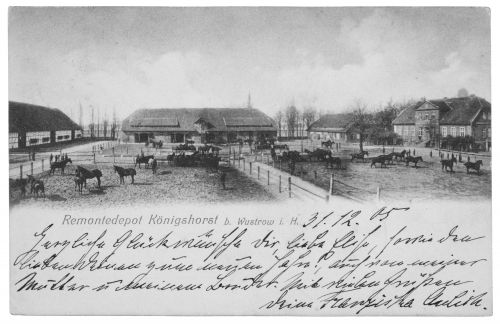 Remontedepot Königshorst b. Wustrow i. H. 31.12.05
Herzliche Glückwünsche Dir liebe Else, sowie den
lieben Deinen zum neuen Jahr, auch von meiner
Mutter u. meinem Bruder. Mit vielen Grüßen
Deine Franziska